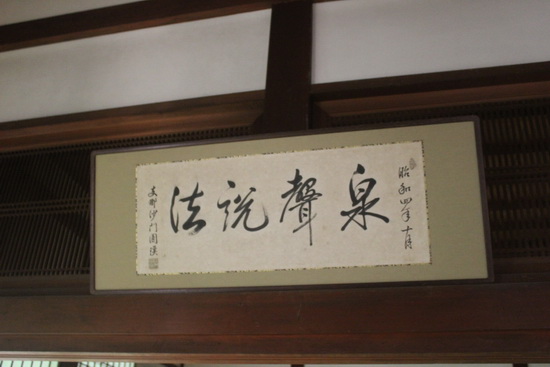 昭和四年十月
泉聲説法
沙門